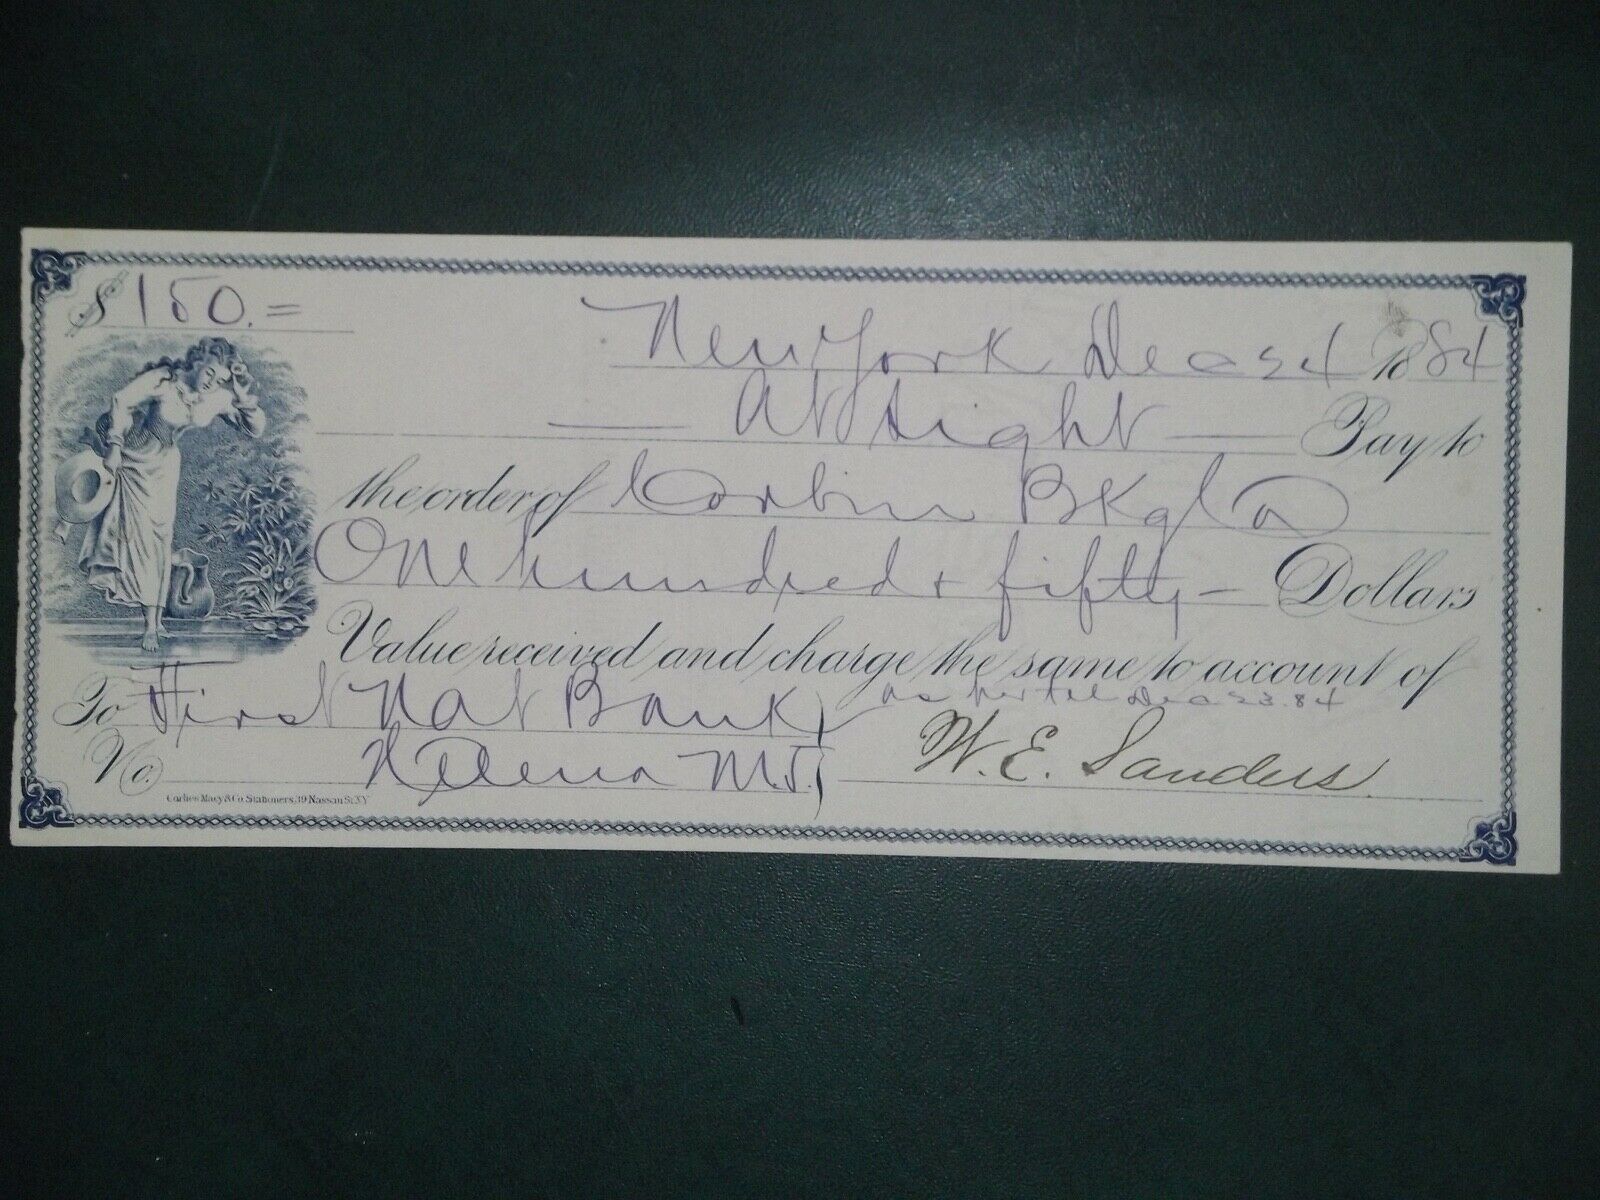 $150.=
New York Dec 24 1884
— At sight — Pay to
the order of Corbin Bkg Co
One hundred & fifty — Dollars
Value received and charge the same to account of
To First Nat Bank as per tel Dec 23.84
No. Helena M.T. W. E. Sanders
Corlies Macy & Co. Stationers, 39 Nassau St. N.Y.